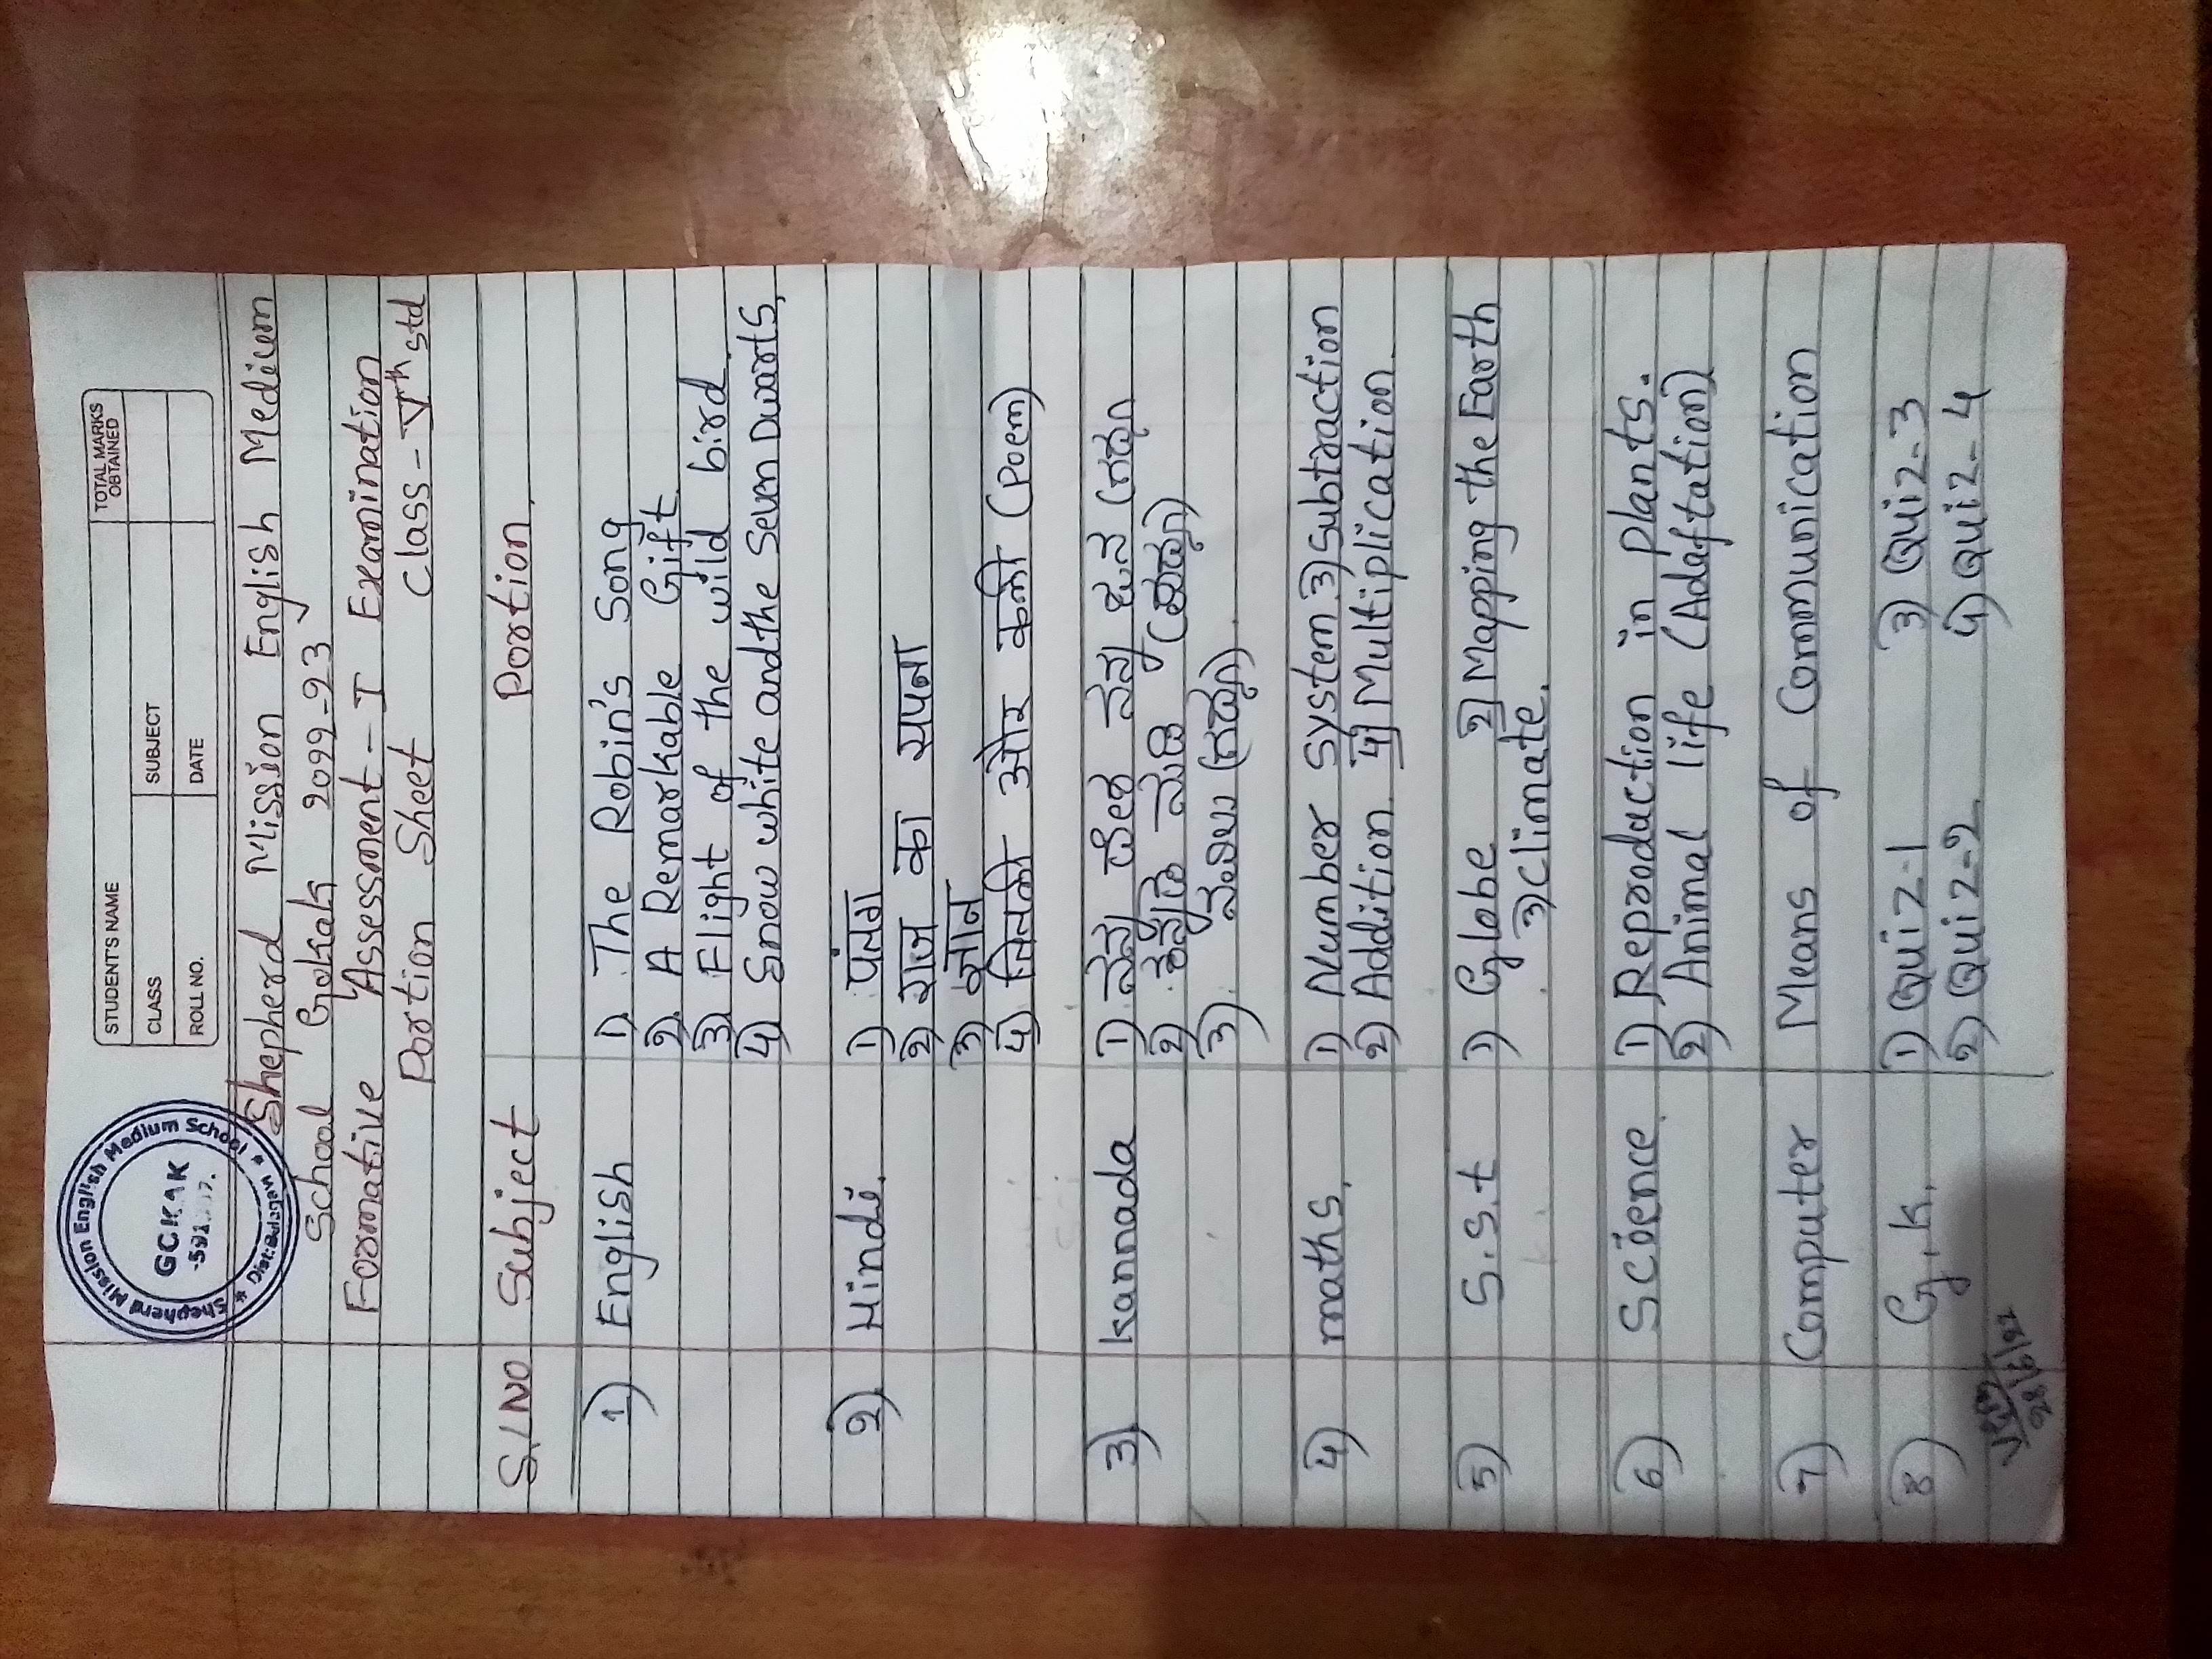 STUDENT'S NAME
TOTAL MARKS OBTAINED
CLASS
SUBJECT
ROLL NO.
DATE
Shepherd Mission English Medium School
GOKAK
Dist: Belagavi
Shepherd Mission English Medium
School Gokak 2022-23
Formative Assessment - I Examination
Portion Sheet Class - Vth std
S.l No Subject Portion
1) English 1) The Robin's Song
2) A Remarkable Gift
3) Flight of the wild bird
4) Snow white and the Seven Dwarfs,
2) Hindi. 1) पंतग
2) राज का सपना
3) ज्ञान
4) तितली और कली (Poem)
3) kannada 1) ನನ್ನ ದೇಶ ನನ್ನ ಜನ (ಗದ್ಯ)
2) (ಪದ್ಯ)
3) (ಗದ್ಯ)
4) maths, 1) Number System 3) Subtraction
2) Addition 4) Multiplication
5) S.S.t 1) Globe 2) Mapping the Earth
3) Climate.
6) Science 1) Reproduction in plants.
2) Animal life (Adaftation)
7) Computer Means of Communication
8) G.K. 1) Quiz-1 3) Quiz-3
2) Quiz-2 4) Quiz-4
28/6/22